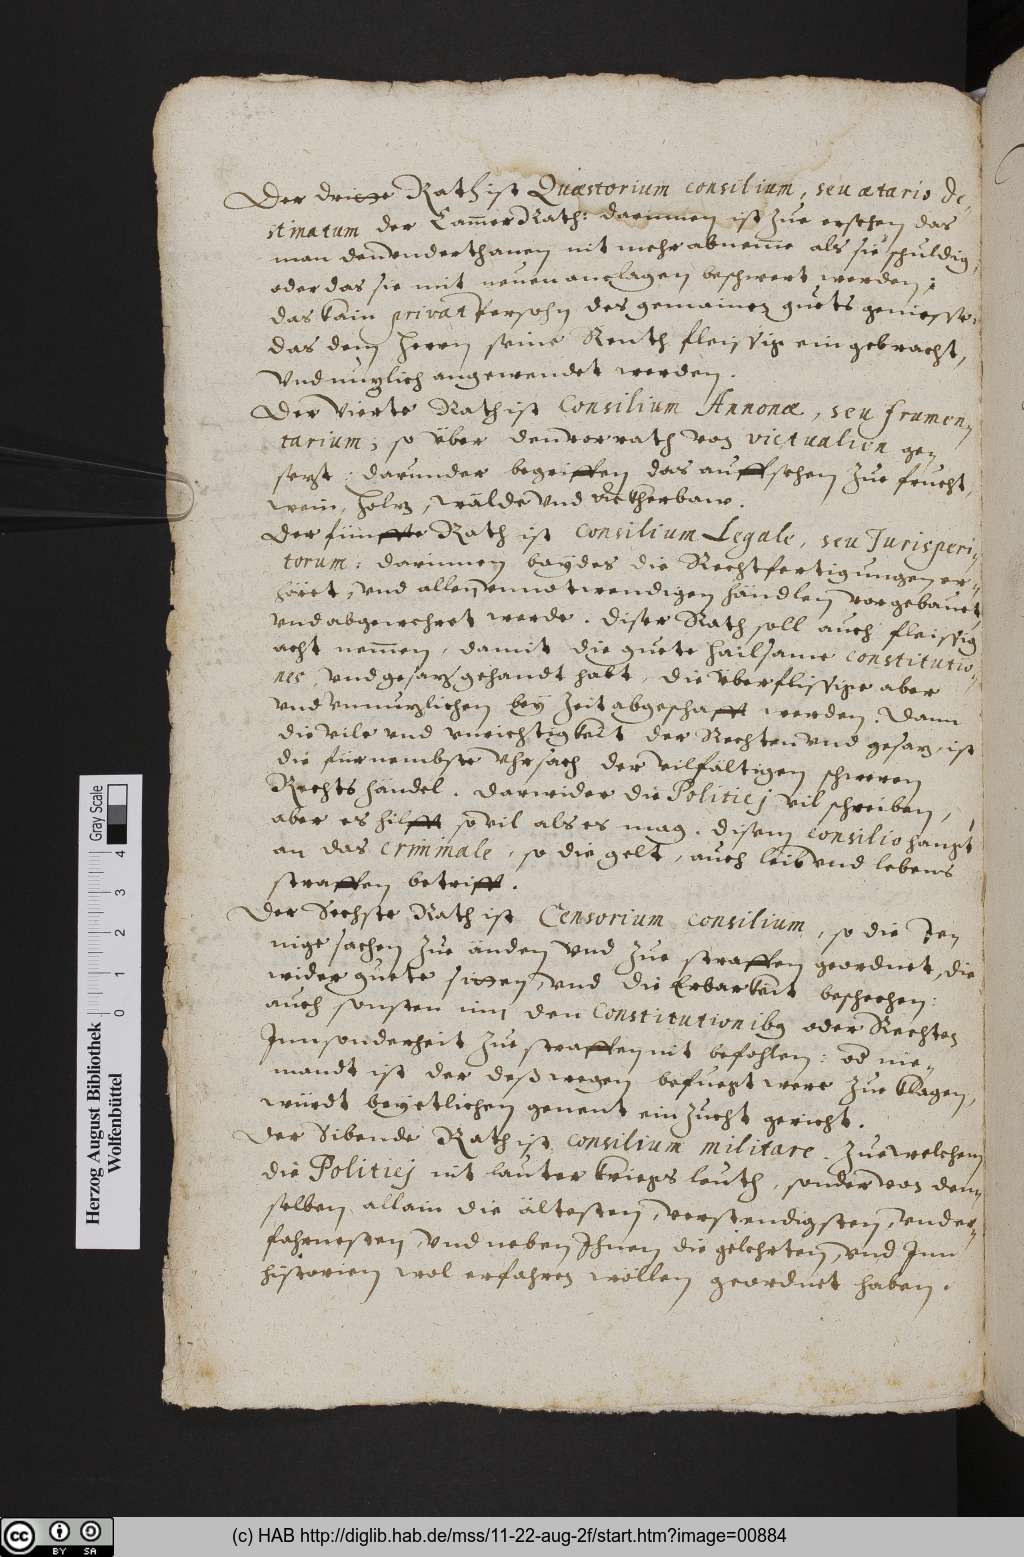 Der dritte Rath ist Quæstorium consilium, seu ætario de-
stinatum der Cam̄er Rath: darinnen ist zue ersehen das
man den underthanen nit mehr abnem̄e als sie schuldig,
oder das sie mit neuen anlagen beschwert werden;
das kain privat Persohn des gemainen guets geniesse:
das dem Herrn seine Renth fleissig eingebracht,
vnd nuzlich angewendet werden.
Der Vierte Rath ist Consilium Annonæ, seu frumen-
tarium; so über den vorrath von victualien ge-
sezt: darunder begriffen das auffsehen zue frucht,
wein, holz, wälde vnd Ackherbaw.
Der fünffte Rath ist consilium Legale, seu Jurisperi-
torum: darinnen baydes die Rechtfertigungen er-
höret, vnd allen vnnotwendigen händlen vorgebauet
vnd abgewehret werde. Diser Rath soll auch fleissig
acht nem̄en, damit die guete hailsame constitutio-
nes, vnd gesaz gehandt habt, die überflissige aber
vnd vnnuzlichen bey zeit abgeschafft werden. Dann
die vile vnd vnrichtigkeit der Rechten vnd gesaz, ist
die fürnembste Vhrsach der vilfältigen schweren
Rechts händel. Darwider die Politicj vil schreiben,
aber es hilfft so vil als es mag. Disem consilio hangt
an das criminale, so die gelt, auch leib vnd lebens
straffen betrifft.
Der Sechste Rath ist Censorium consilium, so die Je-
nige sachen zue änden vnd zue straffen geordnet, die
wider guete sitten, vnd die Erbarkeit beschehen:
auch sonsten inn den Constitutionibus oder Rechten
Innsonderheit zue straffen nit befohlen: ob nie-
mandt ist der deßwegen befuegt were zue klagen,
würdt beyetlichen genent ein zucht gericht.
Der Sibende Rath ist consilium militare. Zue welchem
die Politicj nit lauter kriegs leuth, sonder von dem-
selben allain die ältesten, verstendigsten, vnd er-
fahrnesten, vnd neben Ihnen die gelehrten, vnd Inn
historien wol erfahren wöllen geordnet haben.
Herzog August Bibliothek
Wolfenbüttel
0 1 2 3 4
Gray Scale
cc BY SA
(c) HAB http://diglib.hab.de/mss/11-22-aug-2f/start.htm?image=00884